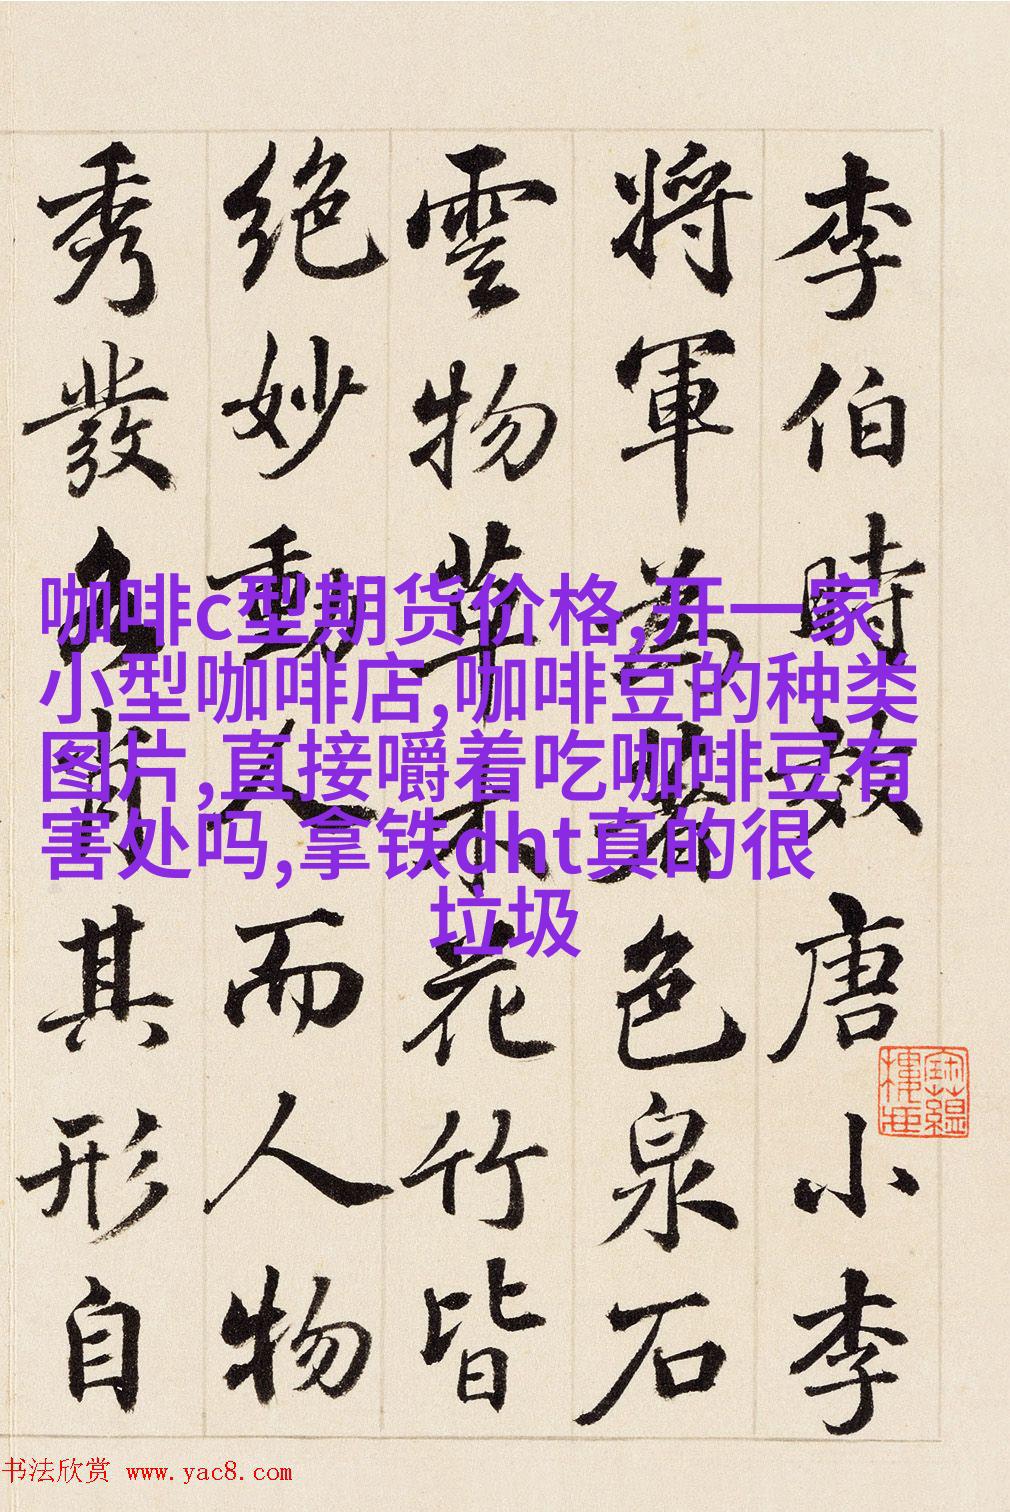 李伯時效唐小李
將軍為著色泉石
雲物草木花竹皆
絶妙動人而人物
秀發各肖其形自
咖啡c型期货价格,开一家
小型咖啡店,咖啡豆的种类
图片,直接嚼着吃咖啡豆有
害处吗,拿铁dht真的很
垃圾
书法欣赏 www.yac8.com